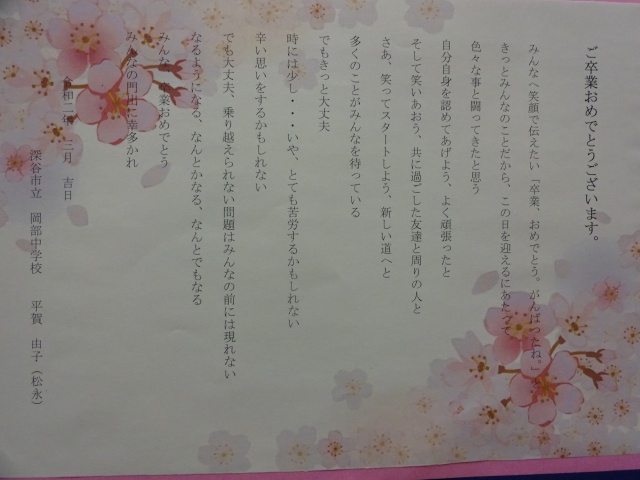 ご卒業おめでとうございます。
みんなへ笑顔で伝えたい「卒業、おめでとう。がんばったね。」
きっとみんなのことだから、この日を迎えるにあたって
色々な事と闘ってきたと思う
自分自身を認めてあげよう、よく頑張ったと
そして笑いあおう、共に過ごした友達と周りの人と
さあ、笑ってスタートしよう、新しい道へと
多くのことがみんなを待っている
でもきっと大丈夫
時には少し・・・いや、とても苦労するかもしれない
辛い思いをするかもしれない
でも大丈夫、乗り越えられない問題はみんなの前には現れない
なるようになる、なんとかなる、なんとでもなる
みんな、卒業おめでとう
みんなの門出に幸多かれ
令和二年 三月 吉日
深谷市立 岡部中学校 平賀 由子(松永)